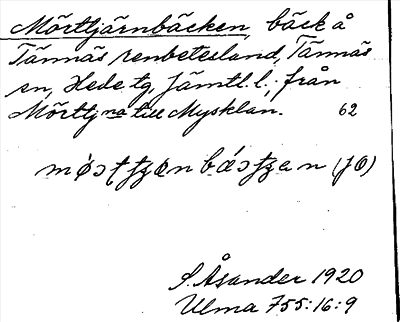 Mörttjärnbäcken, bäck å
Tännäs renbetesland, Tännäs
sn, Hede tg, Jämtl. l.; från
Mörttjna till Mysklan. 62
(JO)
S. Åsander 1920
Ulma 755:16:9